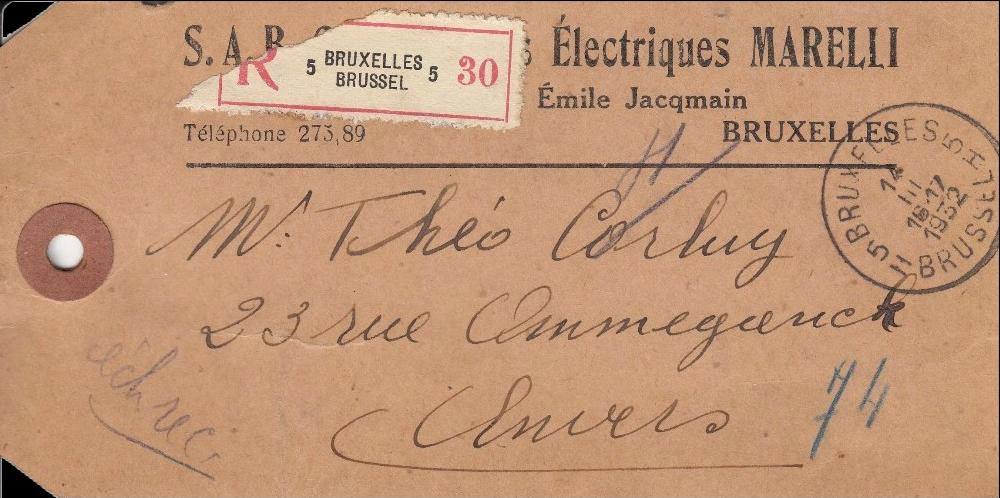 S. A. B. Électriques MARELLI
R 5 BRUXELLES BRUSSEL 5 30
Émile Jacqmain
Téléphone 273,89 BRUXELLES
5 BRUXELLES 5 H
14 III 16-17 1932
BRUSSEL
Mr. Théo Corluy
23 rue Ommeganck
Anvers
74
éch rec